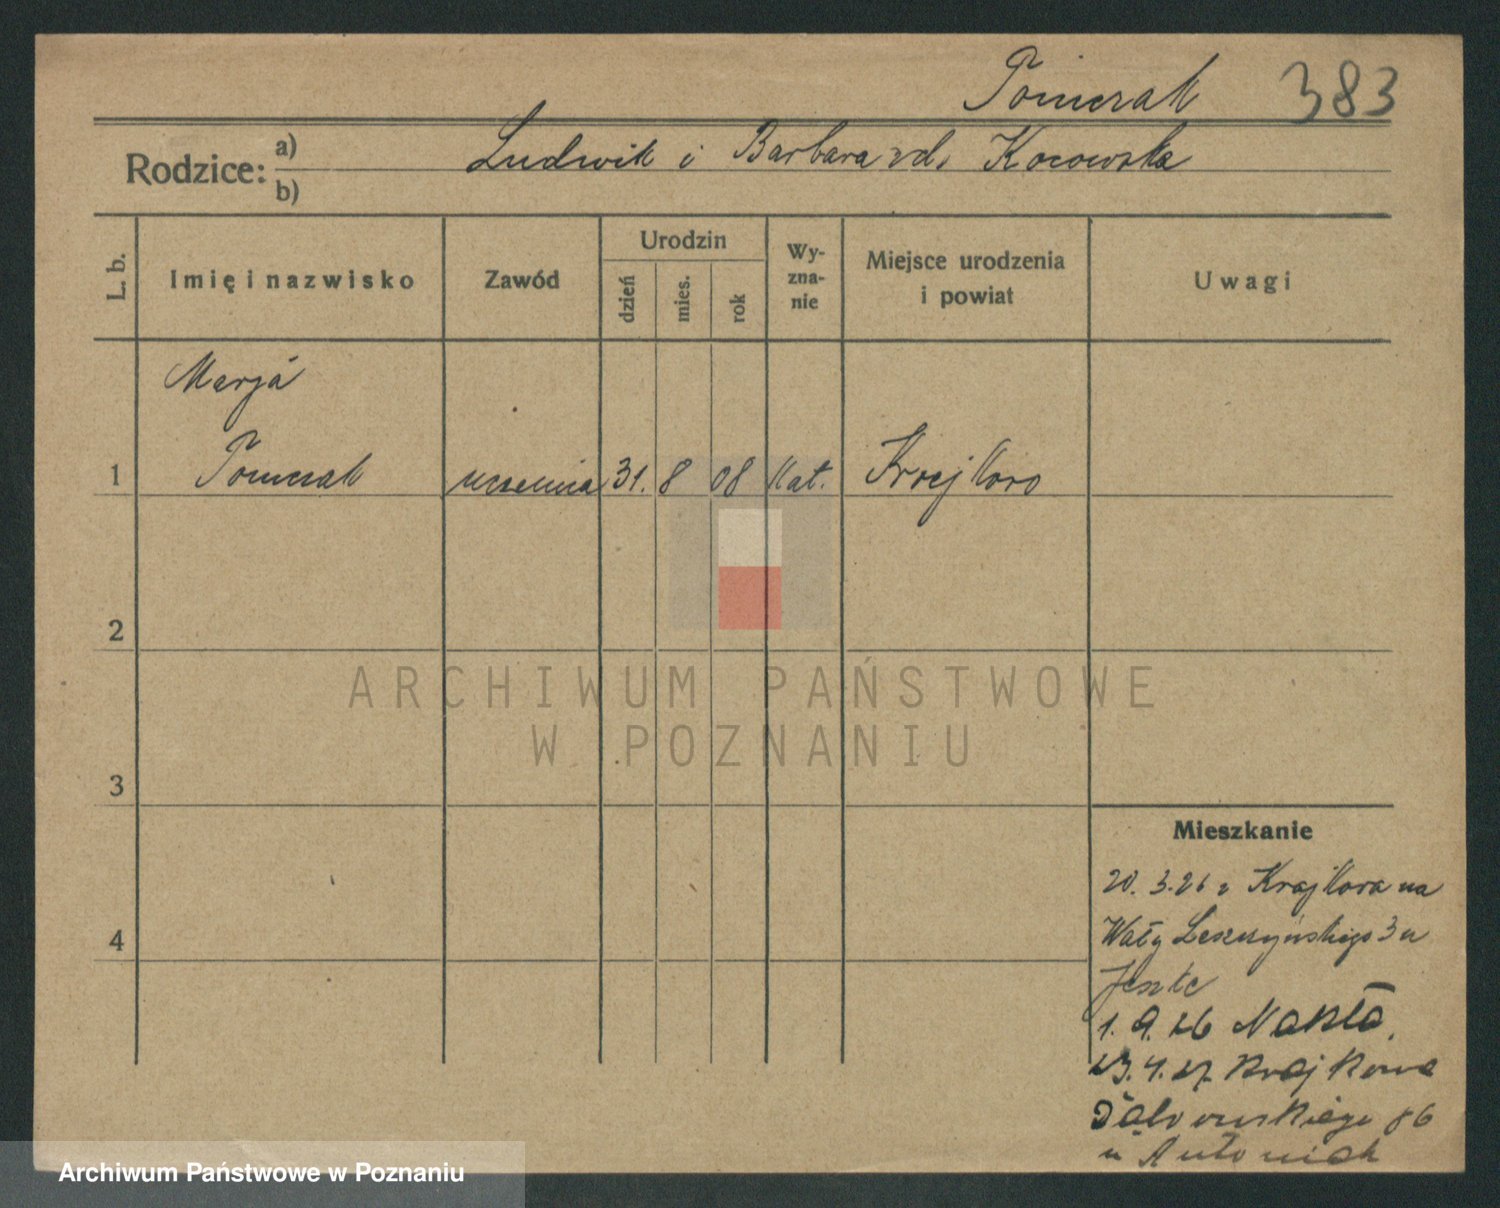 Pomerak 383
Rodzice: a) Ludwik i Barbara zd. Kocowska
b)
L. b. Imię i nazwisko Zawód Urodzin dzień mies. rok Wyznanie Miejsce urodzenia i powiat Uwagi
Marja
1 Pomerak uczenica 31. 8 08 Kat. Krajkowo
2
3
4
Mieszkanie
20. 3. 26 z Krajkowa na
Wały Leszczyńskiego 3 u
Jeszke
1. 9. 26 Nakło.
23. 4. 27. Krajkowa
Dąbrowskiego 86
u Antoniak
ARCHIWUM PAŃSTWOWE
W POZNANIU
Archiwum Państwowe w Poznaniu